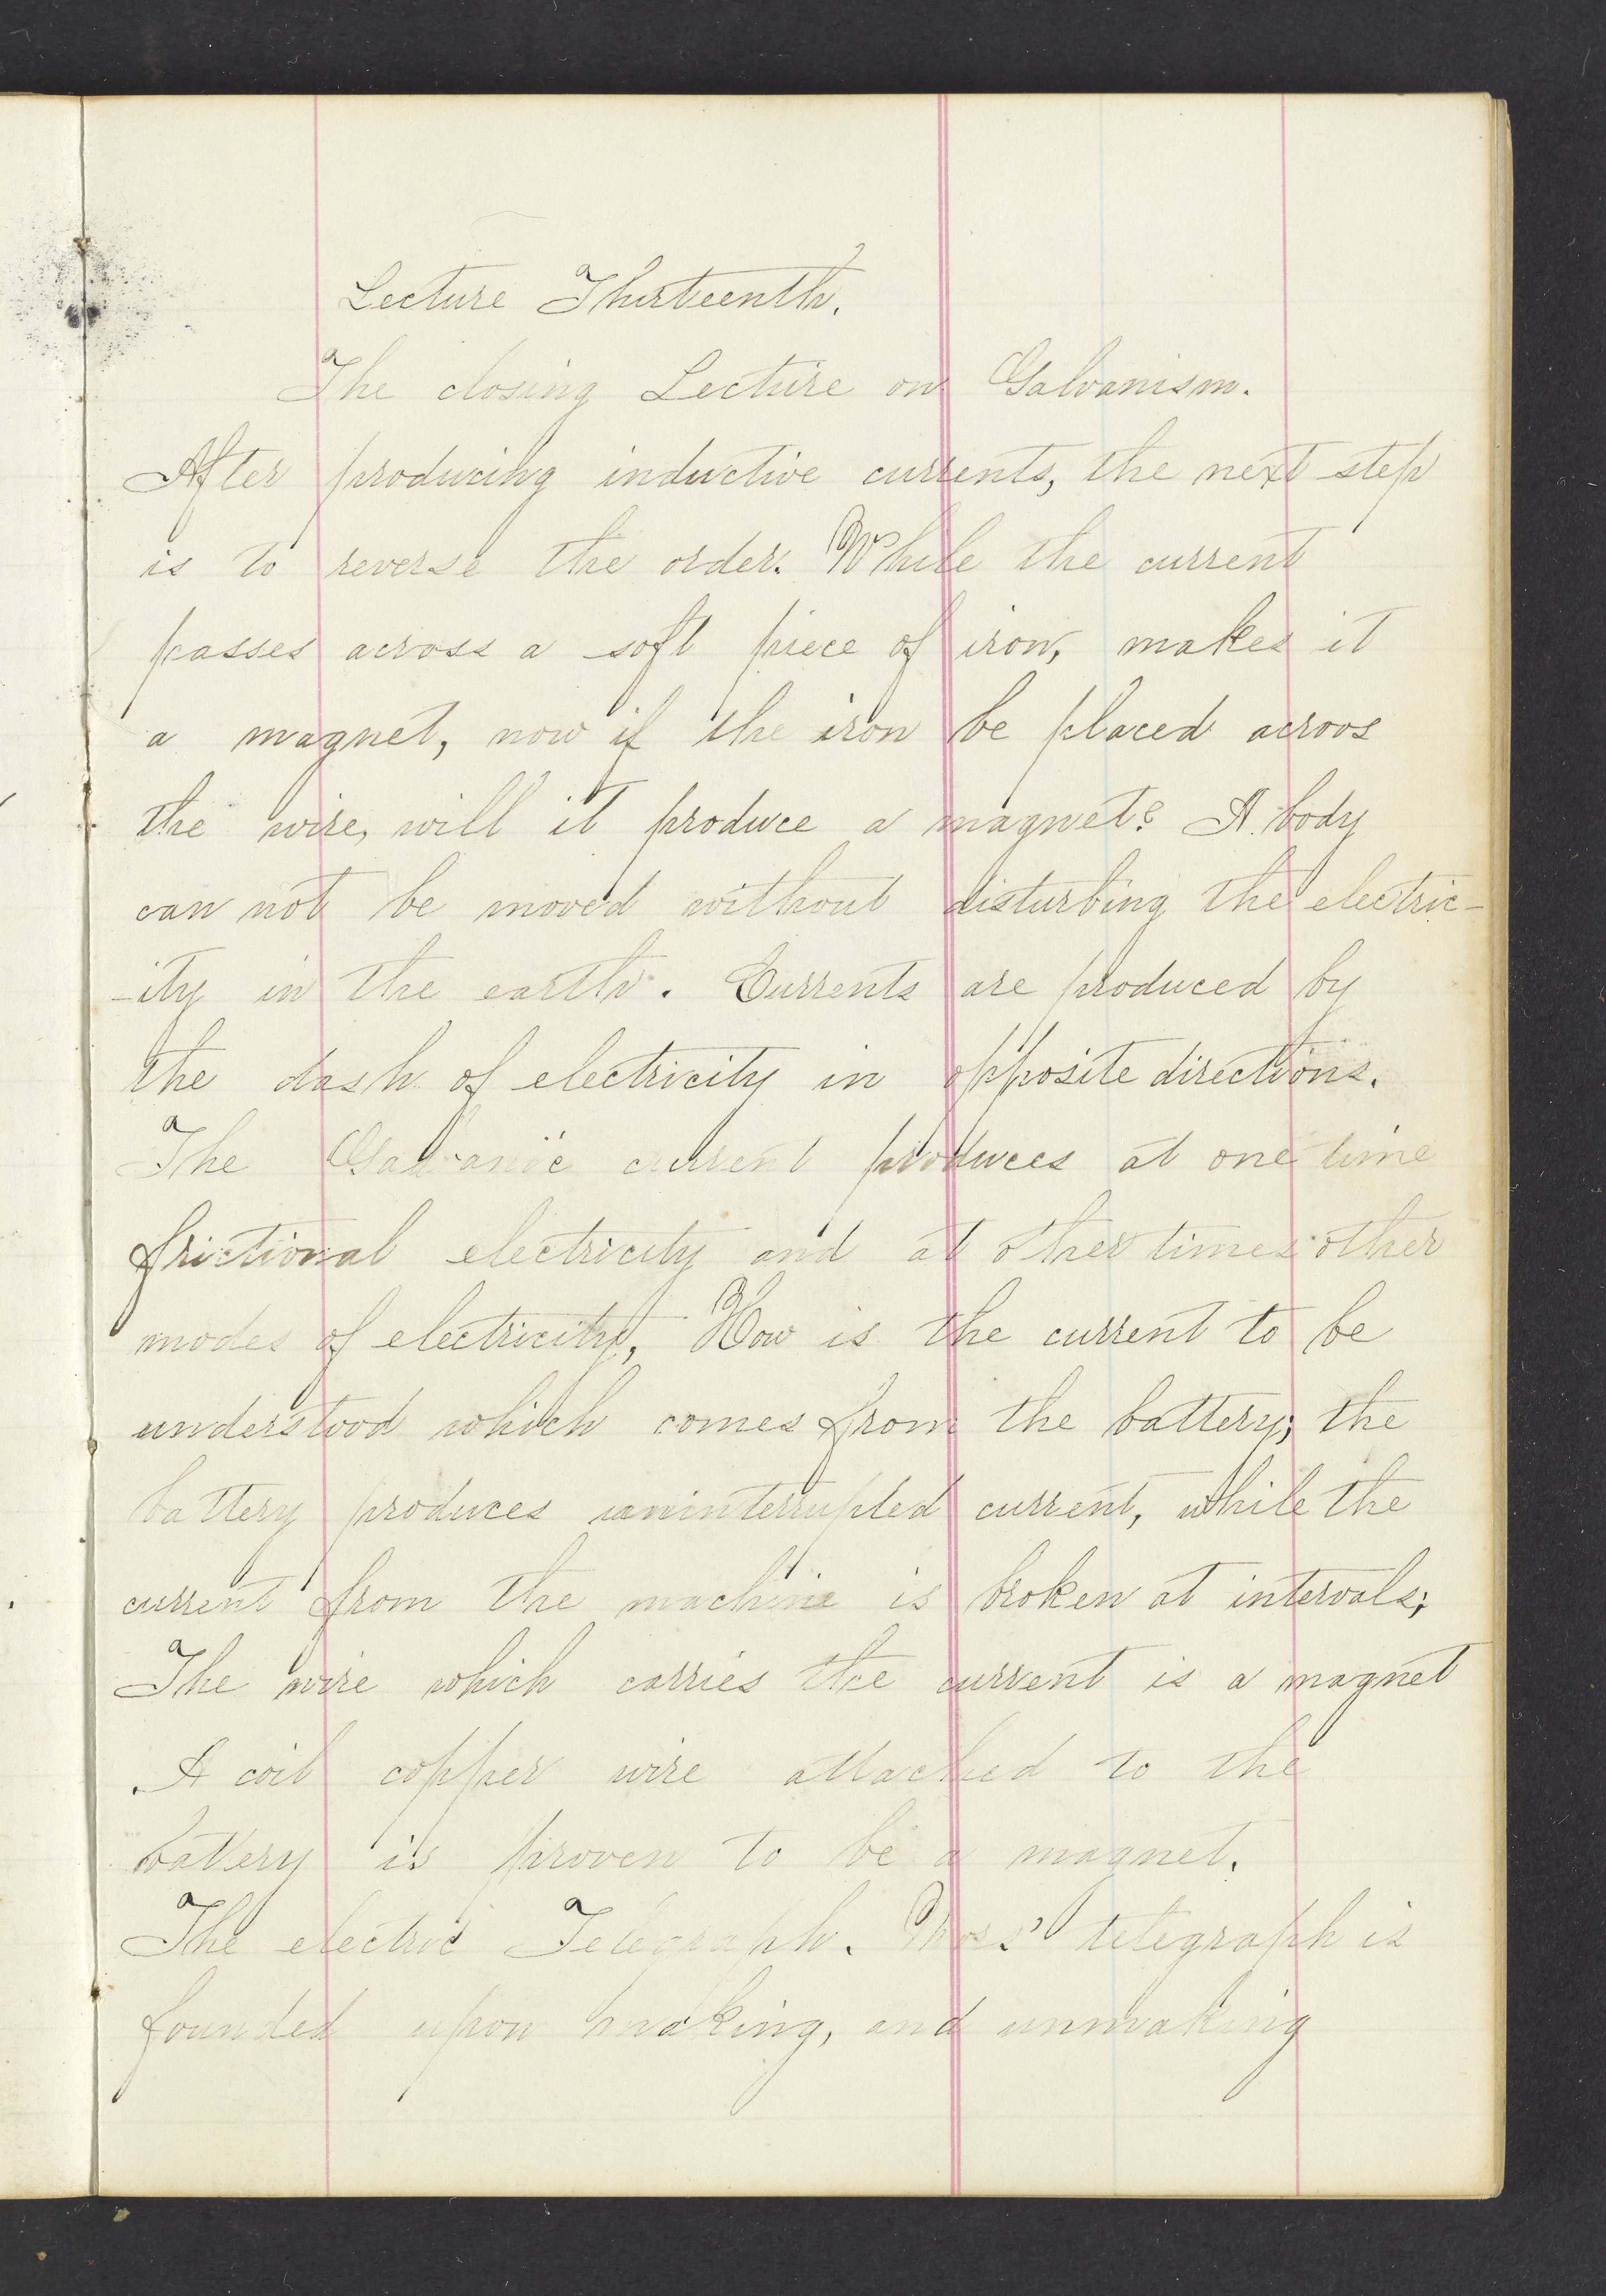 Lecture Thirteenth.
The closing Lecture on Galvanism.
After producing inductive currents, the next step
is to reverse the order. While the current
passes across a soft piece of iron, makes it
a magnet, now if the iron be placed across
the wire, will it produce a magnet? A body
can not be moved without disturbing the electric-
-ity in the earth. Currents are produced by
the dash of electricity in opposite directions.
The Galvanic current produces at one time
frictional electricity and at other times other
modes of electricity, How is the current to be
understood which comes from the battery; the
battery produces uninterrupted current, while the
current from the machine is broken at intervals;
The wire which carries the current is a magnet
. A coil copper wire attached to the
battery is proven to be a magnet.
The electric Telegraph. Mors' telegraph is
founded upon making, and unmaking